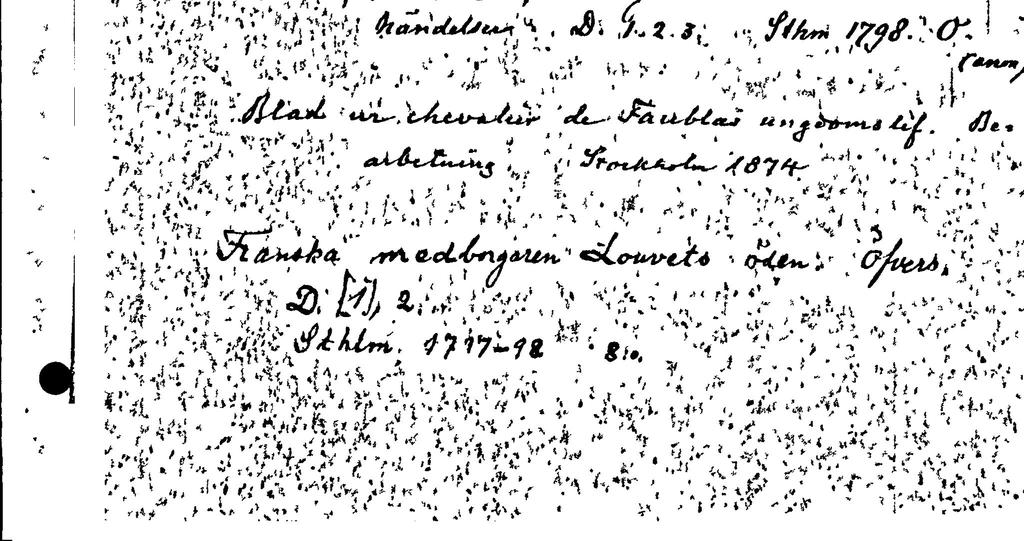 händelser. D. 1. 2. 3. Sthm 1798. O.
(anon)
Blad ur chevalier de Faublas ungdomslif. Be-
arbetning Stockholm 1874
Franska medborgaren Louvets öden. Öfvers.
D. [1], 2.
Sthlm. 1797-98 8:o.